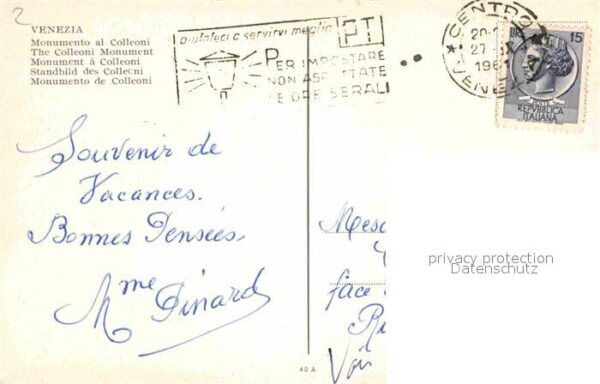 2
VENEZIA
Monumento al Colleoni
The Colleoni Monument
Monument à Colleoni
Standbild des Colleoni
Monumento de Colleoni
aiutateci a servirvi meglio
PT
PER IMPOSTARE
NON ASPETTATE
LE ORE SERALI
CENTRO
20
27
196
VENE
LIRE 15
POSTE
REPVBBLICA
ITALIANA
Souvenir de
Vacances.
Bonnes Pensées
Mme Pinard
Mes
face
privacy protection
Datenschutz
40 A